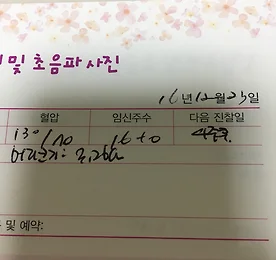 및 초음파 사진
16년 12월 23일
혈압 임신주수 다음 진찰일
130/70 16+0 4주후
머리크기: 3.2cm
및 예약: